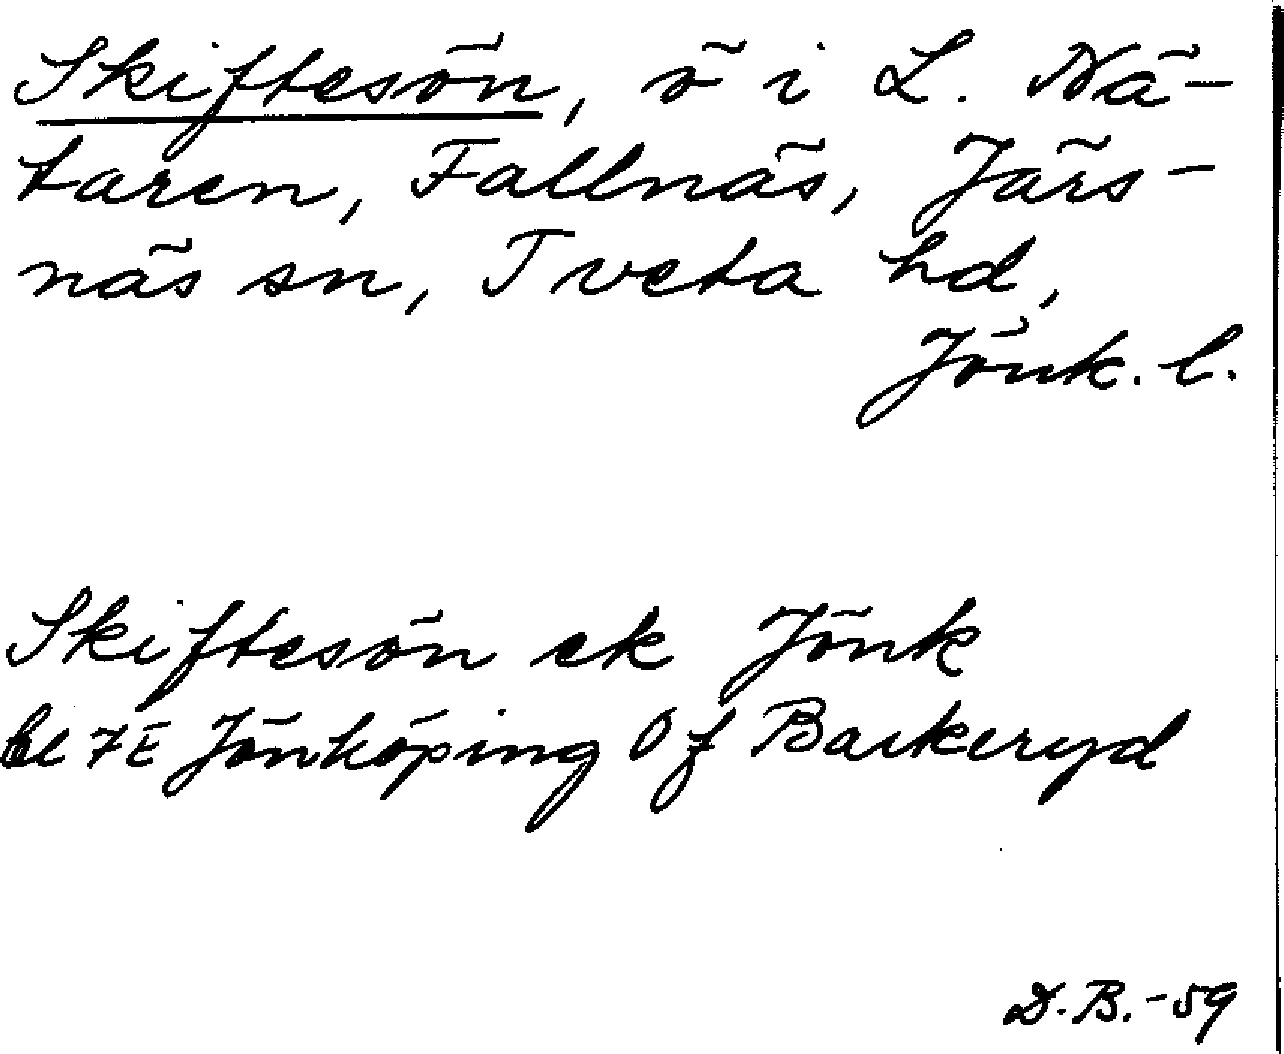 Skiftesön, ö i L. Nä-
taren, Fallnäs, Järs-
näs sn, Tveta hd,
Jönk. l.
Skiftesön ek Jönk
bl 7E Jönköping 0f Barkeryd
D.B.-59